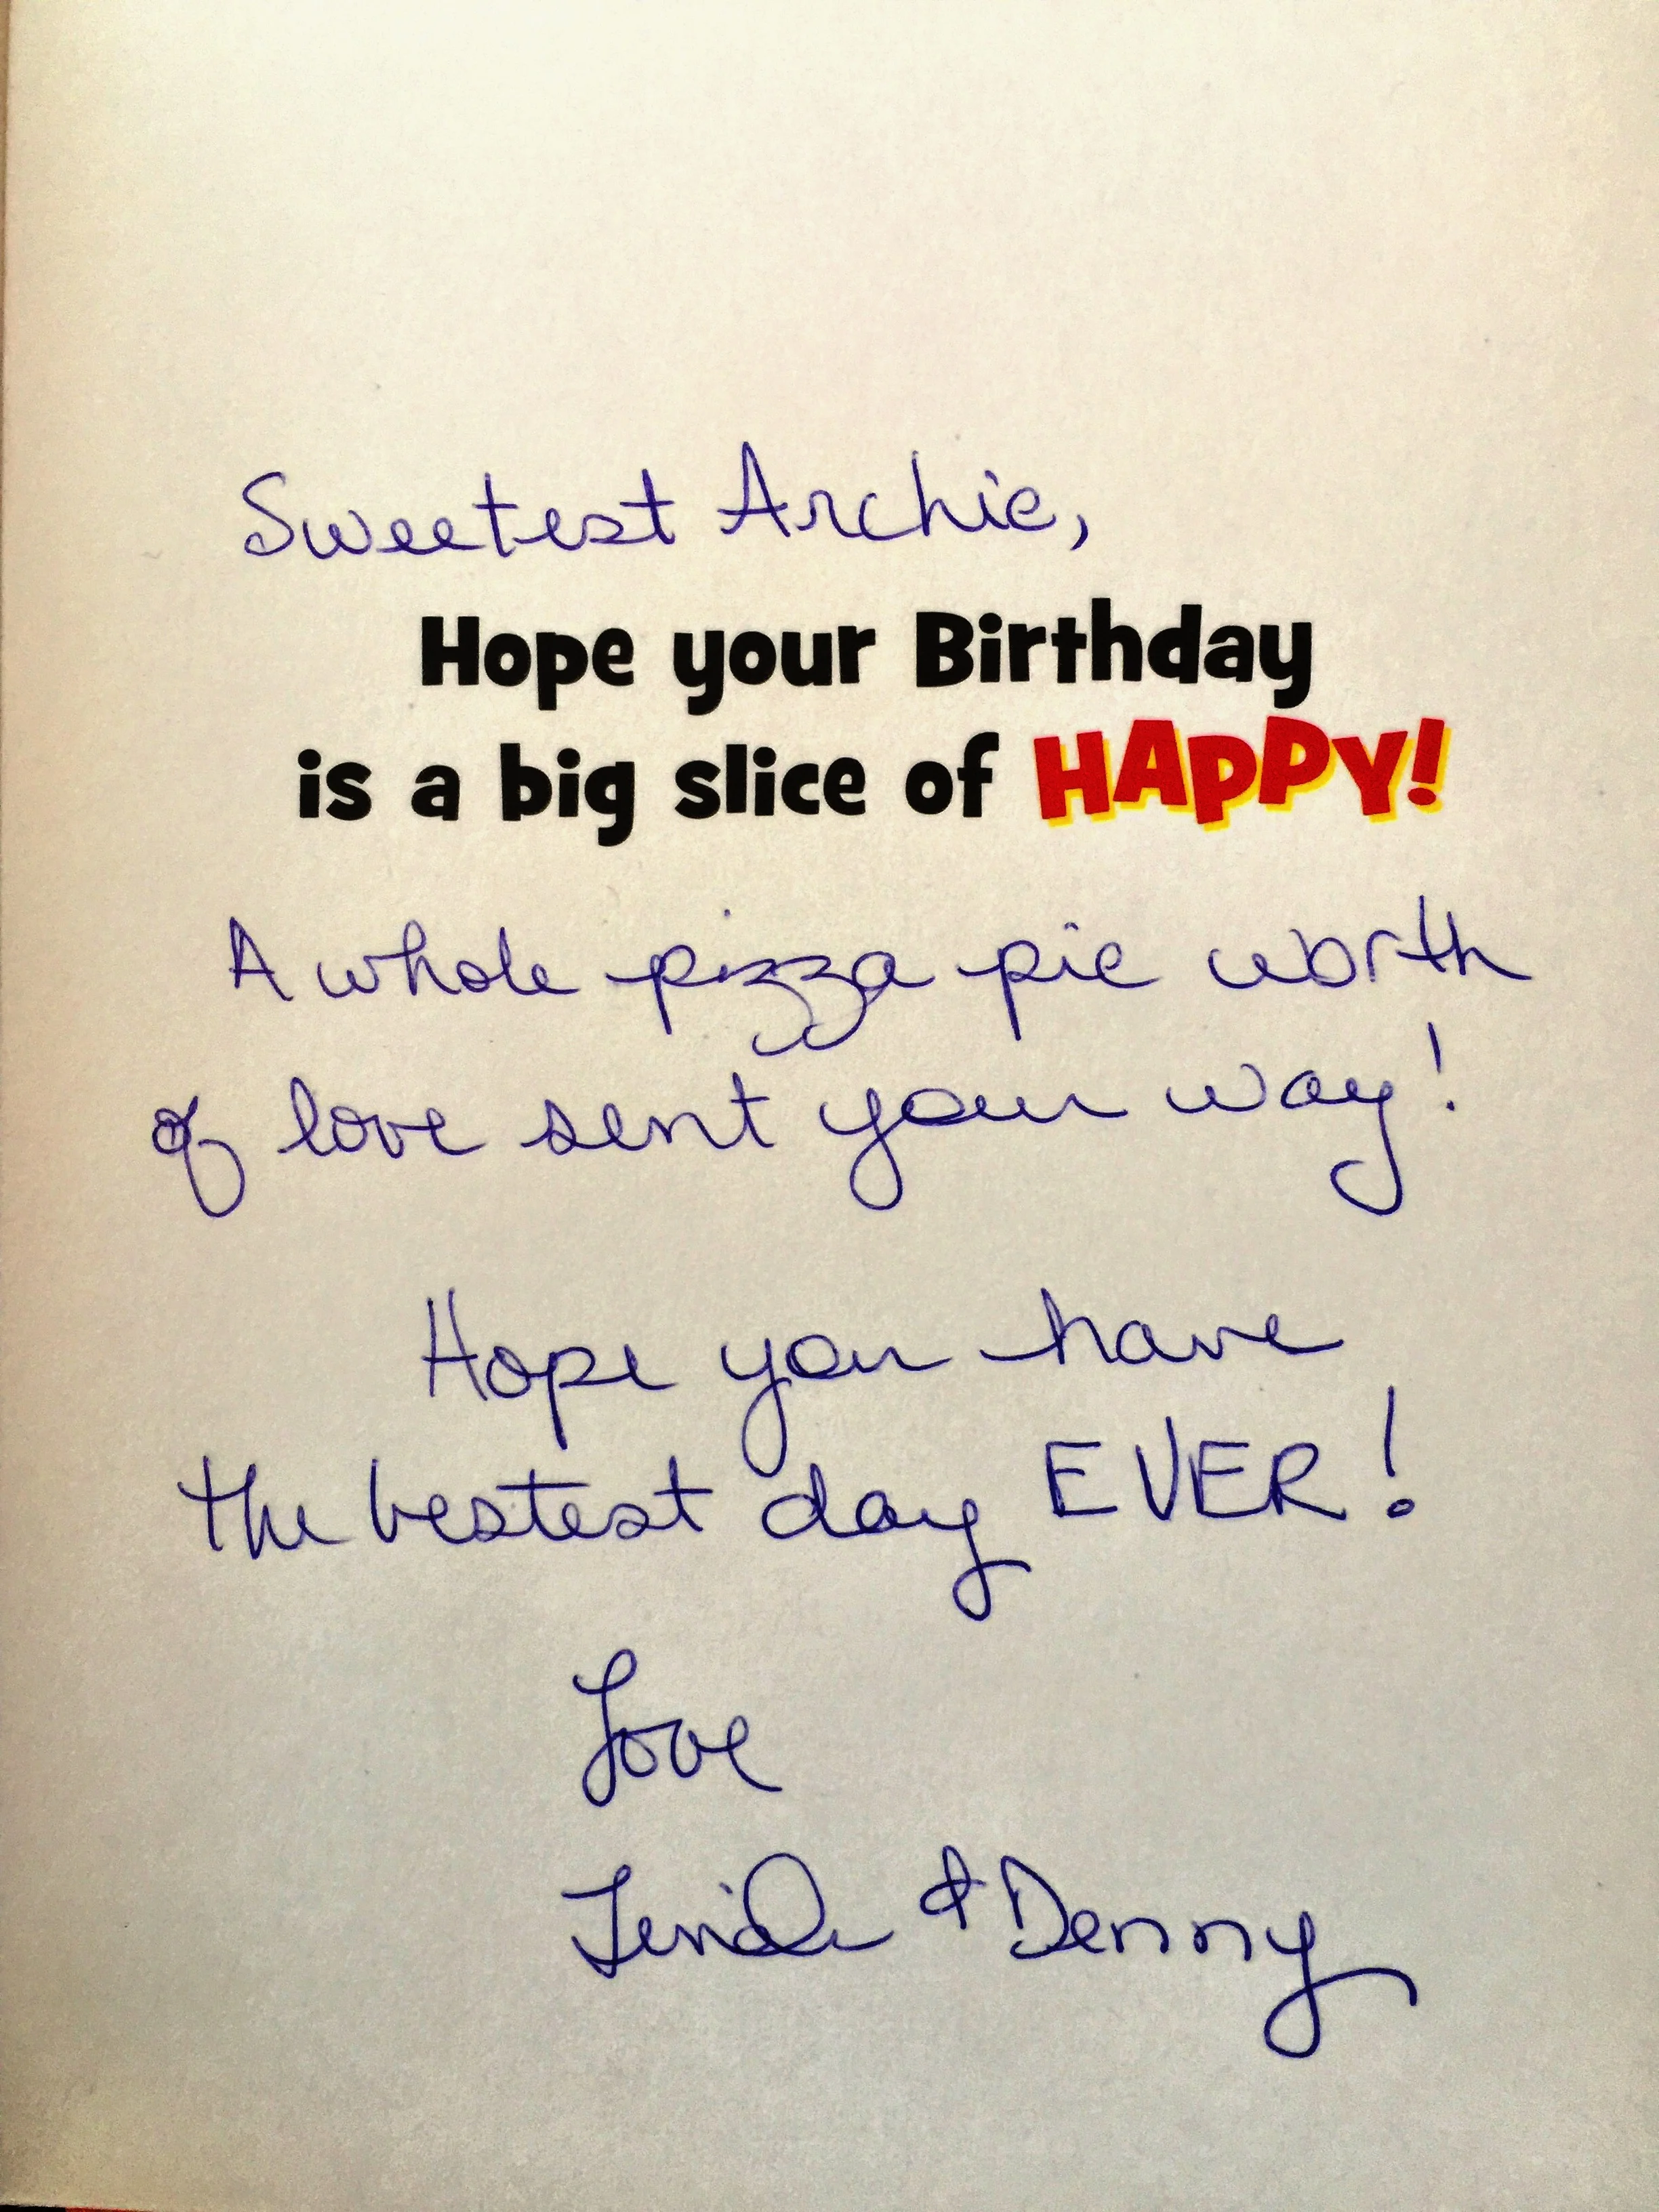 Sweetest Archie,
Hope your Birthday
is a big slice of HAPPY!
A whole pizza pie worth
of love sent your way!
Hope you have
the bestest day EVER!
Love
& Denny